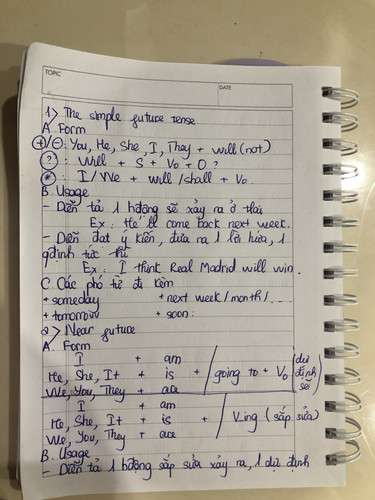 TOPIC
DATE
1> The simple future tense
A. Form
(+)/(-): You, He, She, I, They + will (not)
(?) : Will + S + Vo + O ?
(*) : I/We + will/shall + Vo.
B. Usage
- Diễn tả 1 hđộng sẽ xảy ra ở tlai
Ex: He'll come back next week.
- Diễn đạt ý kiến, đưa ra 1 lời hứa, 1
qđịnh tức thì
Ex: I think Real Madrid will win.
C. Các phó từ đi kèm
+ someday + next week/month/...
+ tomorrow + soon
2> Near future
A. Form
I + am
He, She, It + is + / going to + Vo (dự định sẽ)
We, You, They + are
I + am
He, She, It + is + / V_ing (sắp sửa)
We, You, They + are
B. Usage
- Diễn tả 1 hđộng sắp sửa xảy ra, 1 dự định